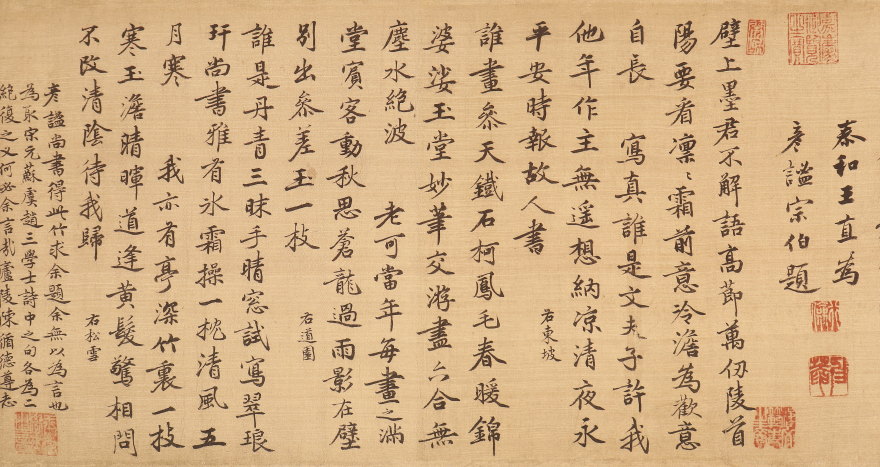 泰和王直為
彥謐宗伯題
壁上墨君不解語高節萬仞陵首
陽要看凜〻霜前意冷澹為歡意
自長　寫真誰是文夫子許我
他年作主無遥想納凉清夜永
平安時報故人書
右東坡
誰畫參天鐵石柯鳳毛春暖錦
婆娑玉堂妙筆交游盡六合無
塵水絕波
老可當年每畫之滿
堂賓客動秋思蒼龍過雨影在壁
别出參差玉一枝
右道園
誰是丹青三昧手晴窓試寫翠琅
玕尚書雅有冰霜操一枕清風五
月寒
我亦有亭深竹裏一枝
寒玉澹晴暉道逢黄髮驚相問
不改清陰待我歸
右松雪
彥謐尚書得此竹求余題余無以為言也
為取宋元蘇虞趙三學士詩中之句各為二
絕復之又何必余言哉廬陵陳循德遵志